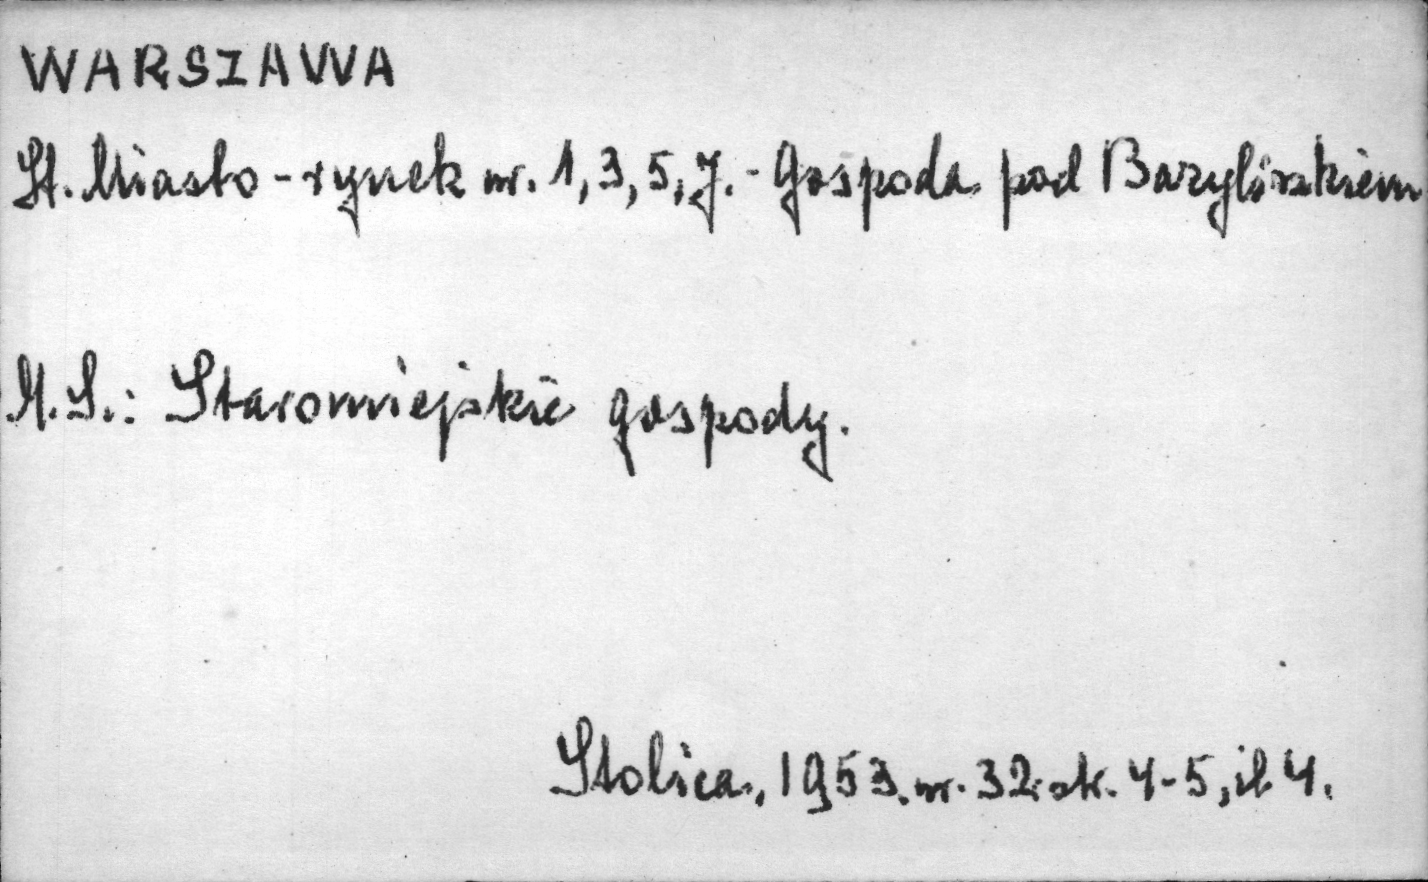 WARSZAWA
St. Miasto - rynek nr. 1, 3, 5, 7. - Gospoda pod Bazyliszkiem
M. S.: Staromiejskie gospody.
Stolica, 1953. nr. 32. str. 4-5, il. 4.